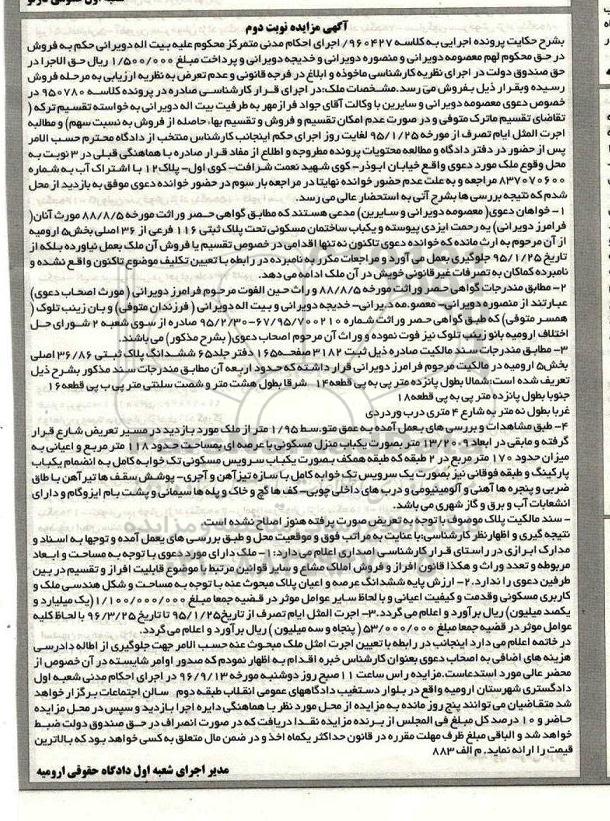 آگهی مزایده نوبت دوم
بشرح حکایت پرونده اجرایی به کلاسه ۹۶۰۴۲۷/ اجرای احکام مدنی متمرکز محکوم علیه بیت اله دویرانی حکم به فروش
در حق محکوم لهم معصومه دویرانی و منصوره دویرانی و خدیجه دویرانی و پرداخت مبلغ ۱/۵۰۰/۰۰۰ ریال حق الاجرا در
حق صندوق دولت در اجرای نظریه کارشناسی ماخوذه و ابلاغ در فرجه قانونی و عدم تعرض به نظریه ارزیابی به مرحله فروش
رسیده وبقرار ذیل بفروش می رسد.مشخصات ملک:در اجرای قرار کارشناسی صادره در پرونده کلاسه ۹۵۰۷۸۰ در
خصوص دعوی معصومه دویرانی و سایرین با وکالت آقای جواد فرازمهر به طرفیت بیت اله دویرانی به خواسته تقسیم ترکه (
تقاضای تقسیم ماترک متوفی و در صورت عدم امکان تقسیم و فروش و تقسیم بها، حاصله از فروش به نسبت سهم) و مطالبه
اجرت المثل ایام تصرف از مورخه ۹۵/۱/۲۵ لغایت روز اجرای حکم اینجانب کارشناس منتخب از دادگاه محترم حسب الامر
پس از حضور در دفتر دادگاه و مطالعه محتویات پرونده مطروحه و اطلاع از مفاد قرار صادره با هماهنگی قبلی در ۳ نوبت به
محل وقوع ملک مورد دعوی واقع خیابان ابوذر- کوی شهید نعمت شرافت- کوی اول- پلاک۱۲ با اشتراک آب به شماره
۸۳۷۰۷۰۶۰۰ مراجعه و به علت عدم حضور خوانده نهایتا در مراجعه بار سوم در حضور خوانده دعوی موفق به بازدید از محل
شدم که نتیجه بررسی ها بشرح آتی به استحضار عالی می رسد.
۱- خواهان دعوی( معصومه دویرانی و سایرین) مدعی هستند که مطابق گواهی حصر وراثت مورخه ۸۸/۸/۵ مورث آنان(
فرامرز دویرانی) یه رحمت ایزدی پیوسته و یکباب ساختمان مسکونی تحت پلاک ثبتی ۱۱۶ فرعی از ۳۶ اصلی بخش۵ ارومیه
از آن مرحوم به ارث مانده که خوانده دعوی تاکنون نه تنها اقدامی در خصوص تقسیم یا فروش آن ملک بعمل نیاورده بلکه از
تاریخ ۹۵/۱/۲۵ جلوگیری بعمل می آورد و مراجعات مکرر به نامبرده در رابطه با تعیین تکلیف موضوع تاکنون واقع نشده و
نامبرده کماکان به تصرفات غیر قانونی خویش در آن ملک ادامه می دهد.
۲- مطابق مندرجات گواهی حصر وراثت مورخه ۸۸/۸/۵ و راث حین الفوت مرحوم فرامرز دویرانی ( مورث اصحاب دعوی)
عبارتند از منصوره دویرانی- معصومه دیرانی- خدیجه دویرانی و بیت اله دویرانی ( فرزندان متوفی) و بان زینب تلوک (
همسر متوفی) که طبق گواهی حصر وراثت شماره ۶۷/۹۵/۰۰۲۱۰-۹۵/۲/۳۰ صادره از سوی شعبه ۲ شورای حل
اختلاف ارومیه بانو زینب تلوک نیز فوت نموده و وراث آن مرحوم اصحاب دعوی( بشرح مذکور) می باشند.
۳- مطابق مندرجات سند مالکیت صادره ذیل ثبت ۳۱۸۲ صفحه۱۶۵ دفتر جلد۶۵ ششدانگ پلاک ثبتی ۳۶/۸۶ اصلی
بخش۵ ارومیه در مالکیت مرحوم فرامرز دویرانی قرار داشته که حدود اربعه آن مطابق مندرجات سند مذکور بشرح ذیل
تعریف شده است:شمالا بطول پانزده متر پی به پی قطعه۱۴ شرقا بطول هشت متر و شصت سلنتی متر پی ب پی قطعه۱۶
جنوبا بطول پانزده متر پی به پی قطعه۱۸
غربا بطول نه متر به شارع ۴ متری درب وردردی
۴- طبق مشاهدات و بررسی های بعمل آمده به عمق متوسط ۱/۹۵ متر از ملک مورد بازدید در مسیر تعریض شارع قرار
گرفته و مابقی در ابعاد ۹*۱۳/۲۰ متر بصورت یکباب منزل مسکونی با عرصه ای بمساحت حدود ۱۱۸ متر مربع و اعیانی به
میزان حدود ۱۷۰ متر مربع در ۲ طبقه که طبقه همکف بصورت یکباب سرویس مسکونی تک خوابه کامل به انضمام یکباب
پارکینگ و طبقه فوقانی نیز بصورت یک سرویس تک خوابه کامل با سازه تیرآهن و آجری- پوشش سقف ها تیرآهن با طاق
ضربی و پنجره ها آهنی و آلومینیومی و درب های داخلی چوبی- کف ها گچ و خاک و پله ها سیمانی و پشت بام ایزوگام و دارای
انشعابات آب و برق و گاز شهری می باشد.
- سند مالکیت پلاک موصوف با توجه به تعریض صورت پرفته هنوز اصلاح نشده است.
نتیجه گیری و اظهار نظر کارشناسی:با عنایت به مراتب فوق و موقعیت محل و طبق بررسی های بعمل آمده و توجها به اسناد و
مدارک ابرازی در راستای قرار کارشناسی اصداری اعلام می دارد: ۱- ملک دارای مورد دعوی با توجه به مساحت و ابعاد
مربوطه و تعدد وراث و هکذا قانون افراز و فروش املاک مشاع و سایر قوانین مرتبط با موضوع قابلیت افراز و تقسیم در بین
طرفین دعوی را ندارد.۲- ارزش پایه ششدانگ عرصه و اعیان پلاک مبحوث عنه با توجه به مساحت و شکل هندسی ملک و
کاربری مسکونی وقدمت و کیفیت اعیانی و با لحاظ سایر عوامل موثر در قضیه جمعا مبلغ ۱/۱۰۰/۰۰۰/۰۰۰(یک میلیارد و
یکصد میلیون) ریال برآورد و اعلام می گردد.۳- اجرت المثل ایام تصرف از تاریخ۹۵/۱/۲۵ تا تاریخ ۹۶/۳/۲۵ با لحاظ کلیه
عوامل موثر در قضیه جمعا مبلغ ۵۳/۰۰۰/۰۰۰ ( پنجاه و سه میلیون ) ریال برآورد و اعلام می گردد.
در خاتمه اعلام می دارد اینجانب در رابطه با تعیین اجرت امثل ملک مبحوث عنه حسب الامر جهت جلوگیری از اطاله دادرسی
هزینه های اضافی به اصحاب دعوی بعنوان کارشناس خبره اقدام به اظهار نمودم که صدور اوامر شایسته در آن خصوص از
محضر عالی مورد استدعاست.مزایده راس ساعت ۱۱ صبح روز دوشنبه مورخه ۹۶/۹/۱۳ در اجرای احکام مدنی شعبه اول
دادگستری شهرستان ارومیه واقع در بلوار دستغیب دادگاههای عمومی انقلاب طبقه دوم سالن اجتماعات برگزار خواهد
شد متقاضیان می توانند پنج روز مانده به مزایده از محل مورد نظر با هماهنگی دایره اجرا بازدید و سپس در محل مزایده
حاضر و ۱۰ درصد کل مبلغ فی المجلس از برنده مزایده نقدا دریافت که در صورت انصراف در حق صندوق دولت ضبط
خواهد شد و الباقی مبلغ ظرف مهلت مقرره در قانون حداکثر یکماه اخذ و در ضمن مال متعلق به کسی خواهد بود که بالاترین
قیمت را ارائه نماید. م الف ۸۸۳
مدیر اجرای شعبه اول دادگاه حقوقی ارومیه